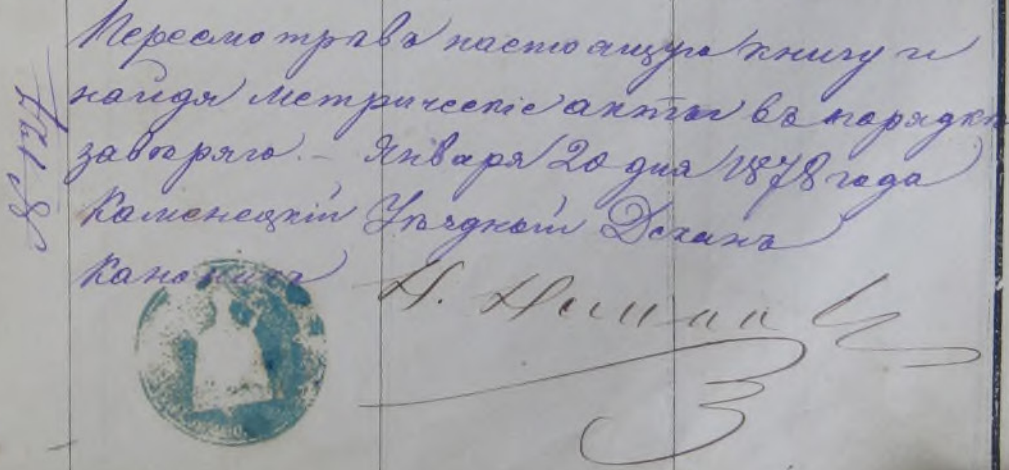 Пересмотравъ настоящую книгу и
найдя метрическіе акты въ порядкѣ
завѣряю. – Января 20 дня 1878 года
Каменецкій Уѣздный Деканъ
Каноникъ
№ 124